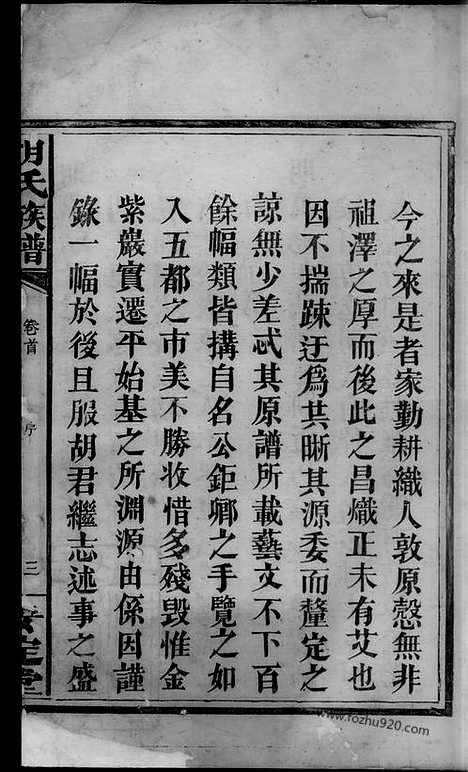 今之來是者家勤耕織人敦原慤無非
祖澤之厚而後此之昌熾正未有艾也
因不揣踈迂爲共晰其源委而釐定之
諒無少差忒其原譜所載藝文不下百
餘幅類皆搆自名公鉅卿之手覽之如
入五都之市美不勝收惜多殘毁惟金
紫巖實遷平始基之所淵源由係因謹
錄一幅於後且服胡君繼志述事之盛
胡氏族譜
卷首
序
三
安定堂
www.fozhu920.com